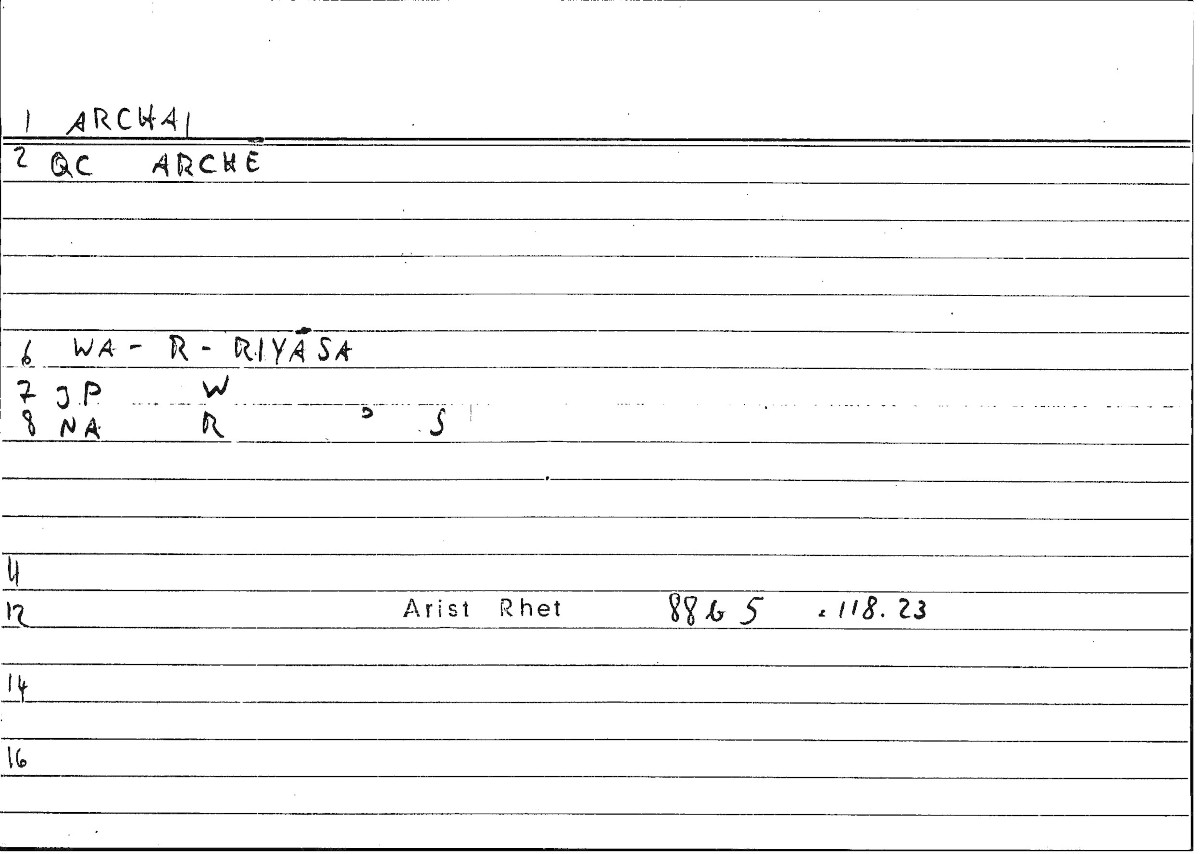 1 ARCHAI
2 QC ARCHĒ
6 WA - R - RIYĀSA
7 JP W
8 NA R ɔ S
11
12 Arist Rhet 88 b 5 .118.23
14
16